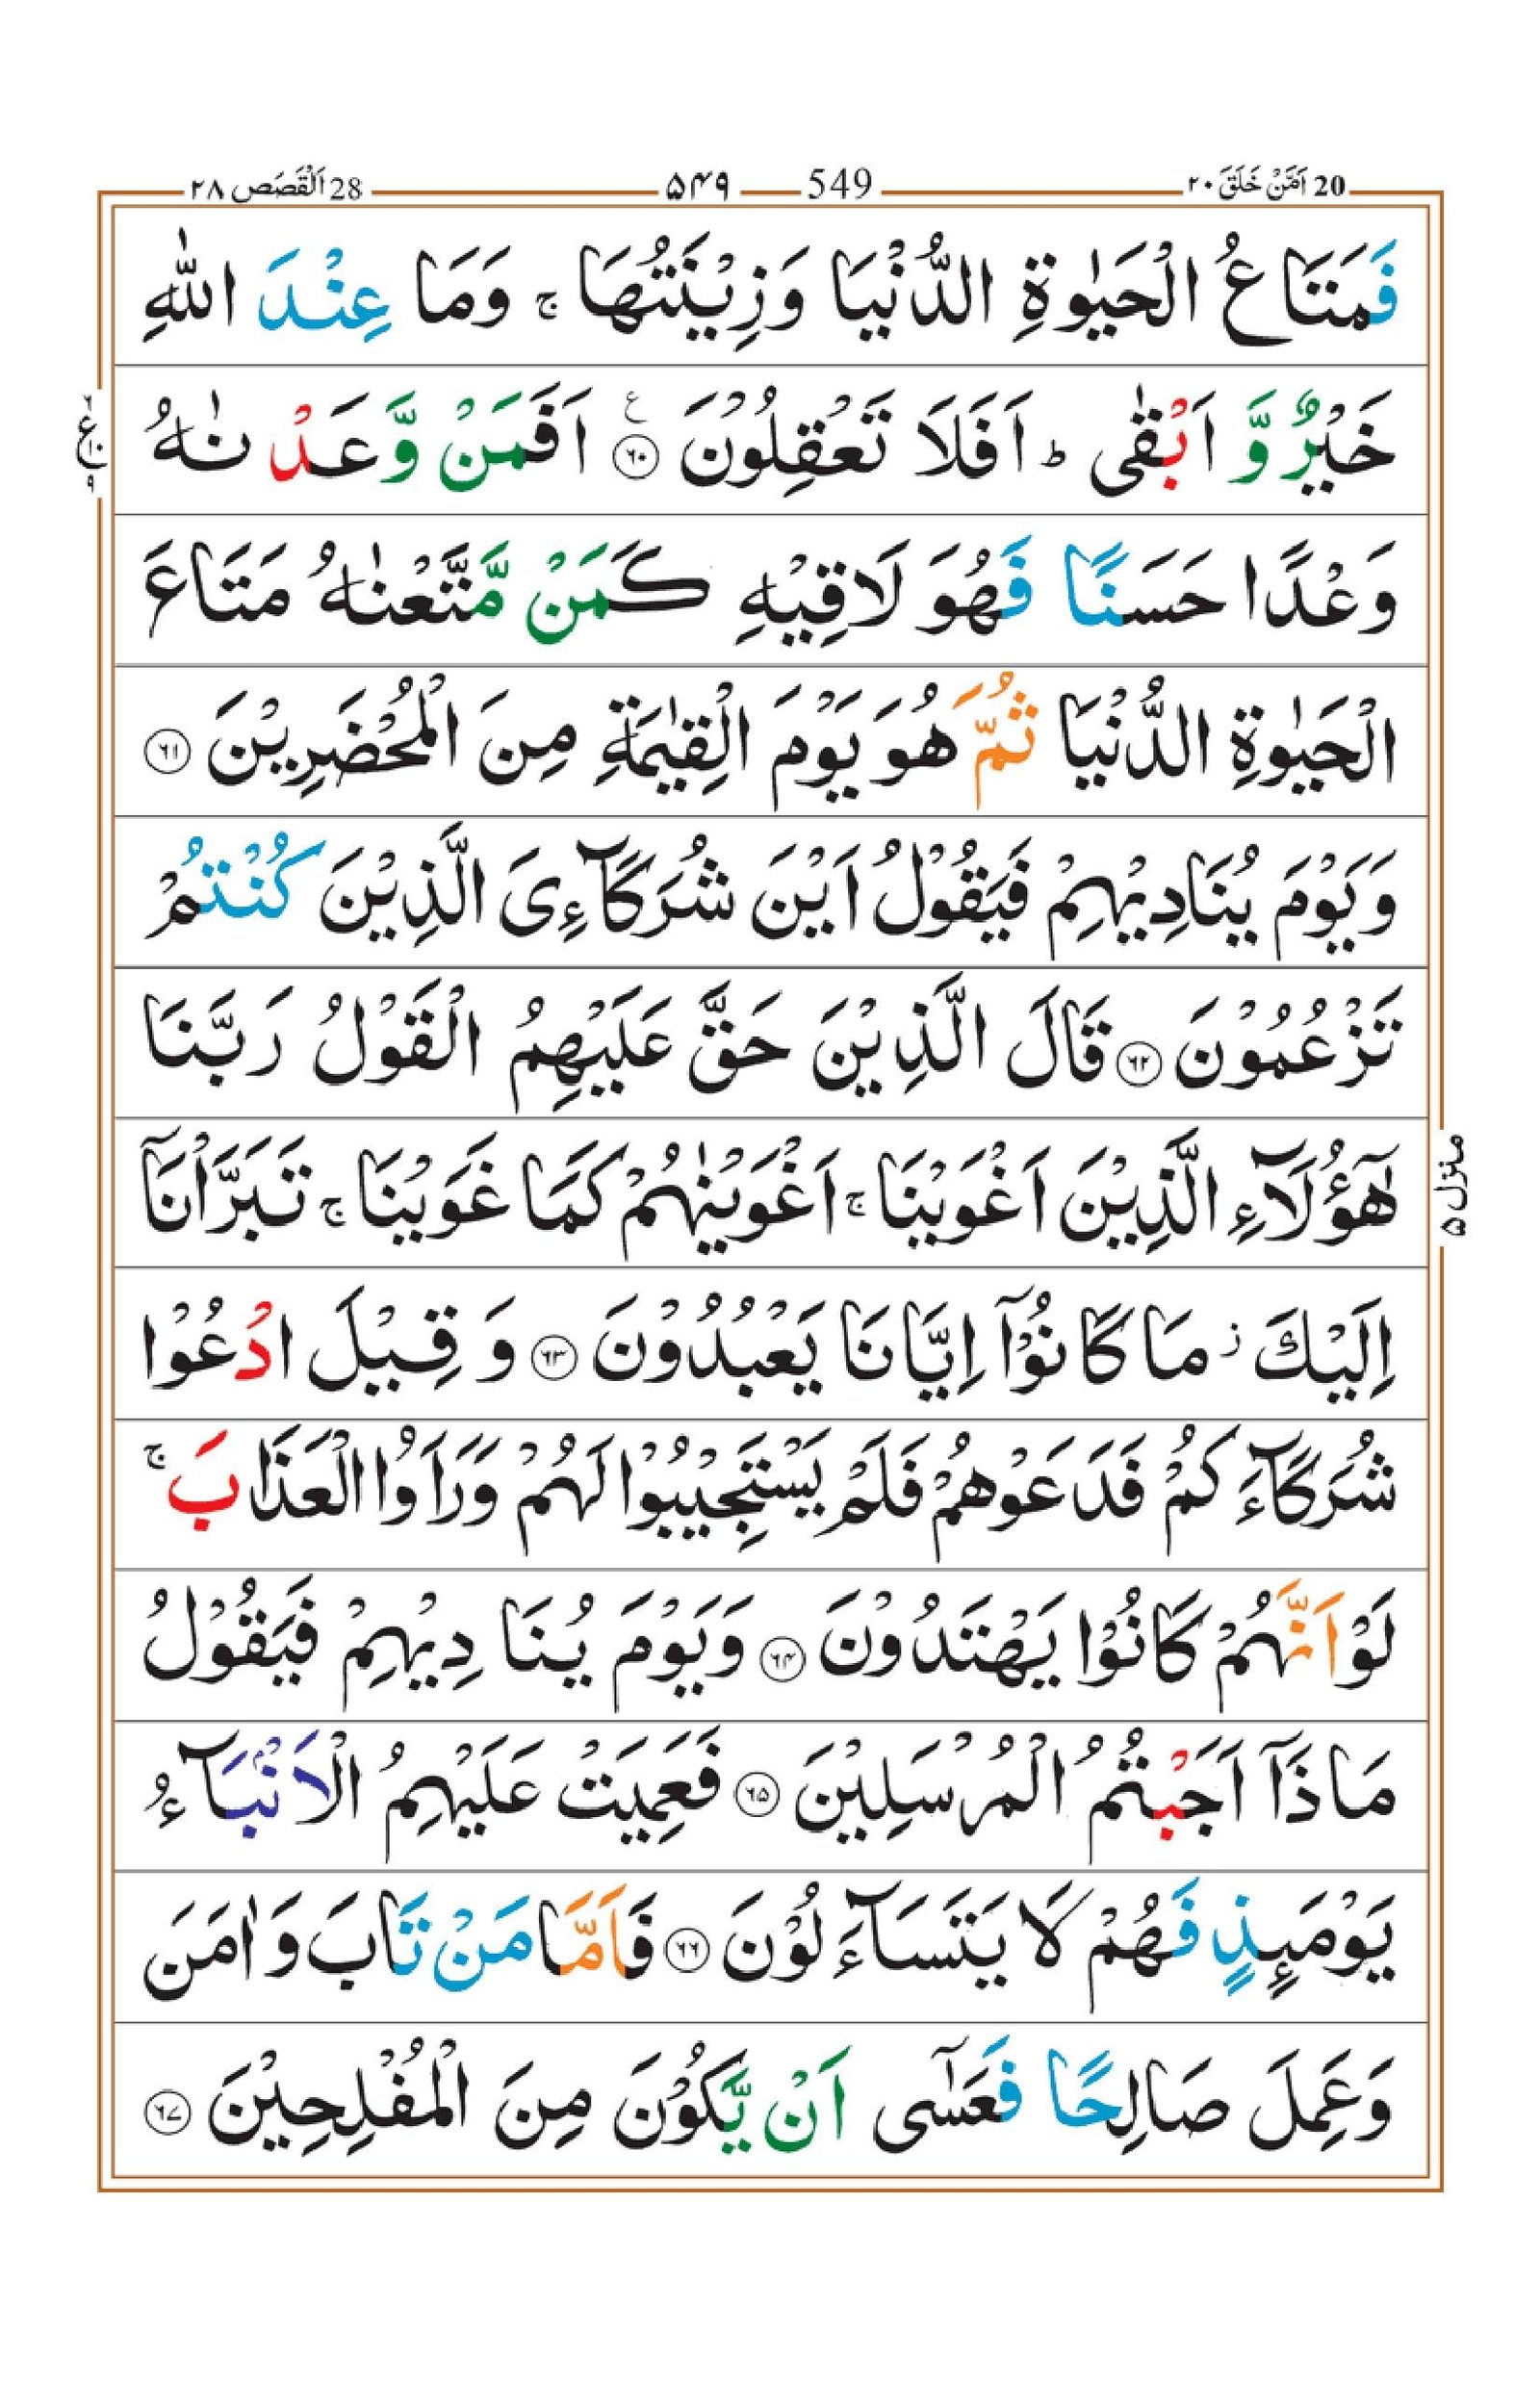 20 اَمَّنْ خَلَقَ ۲۰
549 ۵۴۹
28 اَلْقَصَص ۲۸
فَمَتَاعُ الْحَيٰوةِ الدُّنْيَا وَزِيْنَتُهَا ۚ وَمَا عِنْدَ اللّٰهِ
خَيْرٌ وَّ اَبْقٰى ؕ اَفَلَا تَعْقِلُوْنَ ۶۰ ع اَفَمَنْ وَّعَدْ نٰهُ
وَعْدًا حَسَنًا فَهُوَ لَاقِيْهِ كَمَنْ مَّتَّعْنٰهُ مَتَاعَ
الْحَيٰوةِ الدُّنْيَا ثُمَّ هُوَ يَوْمَ الْقِيٰمَةِ مِنَ الْمُحْضَرِيْنَ ۶۱
وَيَوْمَ يُنَادِيْهِمْ فَيَقُوْلُ اَيْنَ شُرَكَآءِىَ الَّذِيْنَ كُنْتُمْ
تَزْعُمُوْنَ ۶۲ قَالَ الَّذِيْنَ حَقَّ عَلَيْهِمُ الْقَوْلُ رَبَّنَا
هٰٓؤُلَآءِ الَّذِيْنَ اَغْوَيْنَا ۚ اَغْوَيْنٰهُمْ كَمَا غَوَيْنَا ۚ تَبَرَّاْنَاۤ
اِلَيْكَ ز مَا كَانُوْۤا اِيَّانَا يَعْبُدُوْنَ ۶۳ وَ قِيْلَ ادْعُوْا
شُرَكَآءَ كُمْ فَدَعَوْهُمْ فَلَمْ يَسْتَجِيْبُوْا لَهُمْ وَرَاَوُا الْعَذَابَ ۚ
لَوْ اَنَّهُمْ كَانُوْا يَهْتَدُوْنَ ۶۴ وَيَوْمَ يُنَا دِيْهِمْ فَيَقُوْلُ
مَاذَاۤ اَجَبْتُمُ الْمُرْسَلِيْنَ ۶۵ فَعَمِيَتْ عَلَيْهِمُ الْاَنْۢبَآءُ
يَوْمَىِٕذٍ فَهُمْ لَا يَتَسَآءَ لُوْنَ ۶۶ فَاَمَّا مَنْ تَابَ وَ اٰمَنَ
وَعَمِلَ صَالِحًا فَعَسٰٓى اَنْ يَّكُوْنَ مِنَ الْمُفْلِحِيْنَ ۶۷
۶ ع ۱۰ ۹
منزل ۵